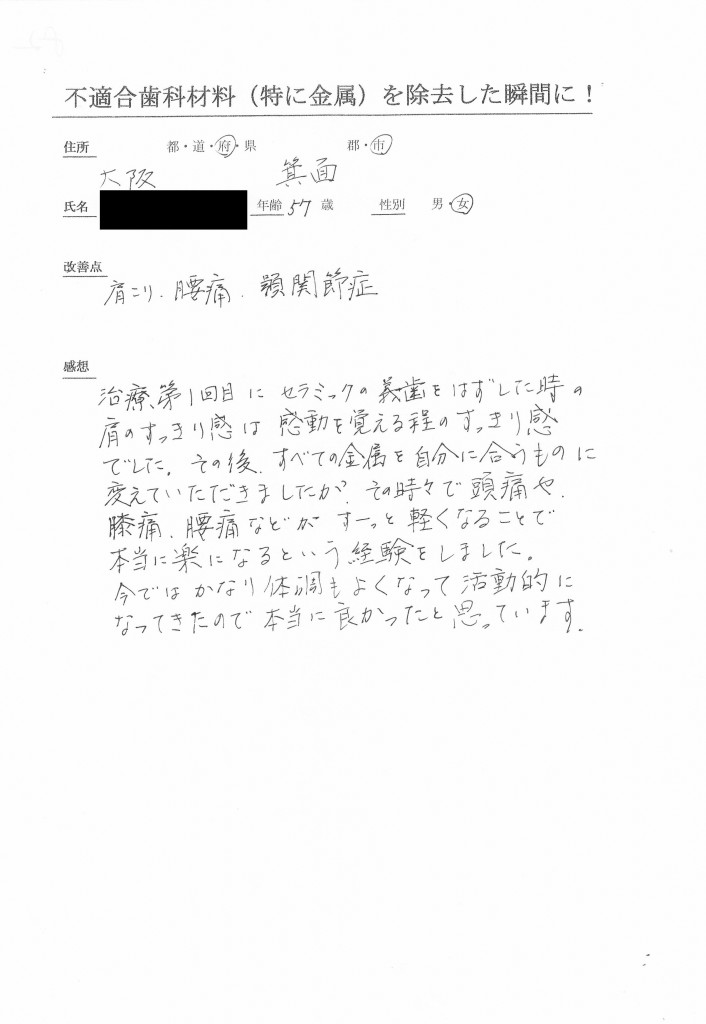 不適合歯科材料（特に金属）を除去した瞬間に！
住所 都・道・府・県 郡・市
大阪 箕面
氏名 年齢 57 歳 性別 男・女
改善点
肩こり、腰痛、顎関節症
感想
治療第1回目にセラミックの義歯をはずした時の
肩のすっきり感は感動を覚える程のすっきり感
でした。その後、すべての金属を自分に合うものに
変えていただきましたが、その時々で頭痛や、
膝痛、腰痛などがすーっと軽くなることで
本当に楽になるという経験をしました。
今ではかなり体調もよくなって活動的に
なってきたので本当に良かったと思っています。